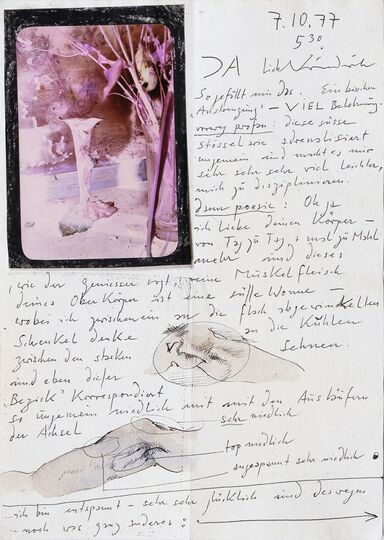 7.10.77
5 30
DA lieb
So gefällt mir das. Ein bisschen
'Anstrengung' – VIEL Belohnung
vorweg prosa: diese süsse
ungemein und macht es mir
sehr sehr sehr viel leichter,
mich zu disziplinieren.
dann poesie: Oh ja
ich liebe deinen Körper –
von Tag zu Tag + mal zu Mahl
mehr und dieses
wie der geniesser sagt: reine Muskelfleisch
deines Ober Körper ist eine süsse Wonne –
wobei ich zwischenein an die flach abgewinkelten
Schenkel denke an die Kühlen
zwischen den starken Sehnen.
und eben dieser
Bezirk' Korrespondiert
so ungemein niedlich mit mit den Ausläufern
der Achsel sehr niedlich
top niedlich
angespannt sehr niedlich
ich bin entspannt – sehr sehr glücklich und deswegen
noch was ganz anderes: